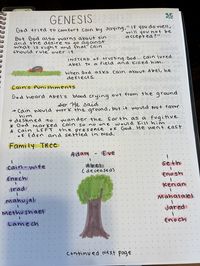 GENESIS
God tried to comfort Cain by saying, "If you do well,
will you not be
accepted?"
God also warns about sin
and the desire to do wrong
what is right and that Cain
should rule over it.
Instead of trusting God... Cain lured
Abel to a field and killed him.
When God asks Cain about Abel, he
deflects.
Cain's Punishments
God heard Abel's blood crying out from the ground
He said
Cain would work the ground, but it would not favor
him
destined to wander the Earth as a fugitive
God marked Cain so no one would kill him
Cain LEFT the presence of God. He went east
of Eden and settled in Nod.
Family Tree
Adam - Eve
Cain - wife
Abel
(deceased)
Seth
Enoch
Enosh
Irad
Kenan
Mahujal
Mahalalel
Methushael
Jared
Lamech
Enoch
continued next page